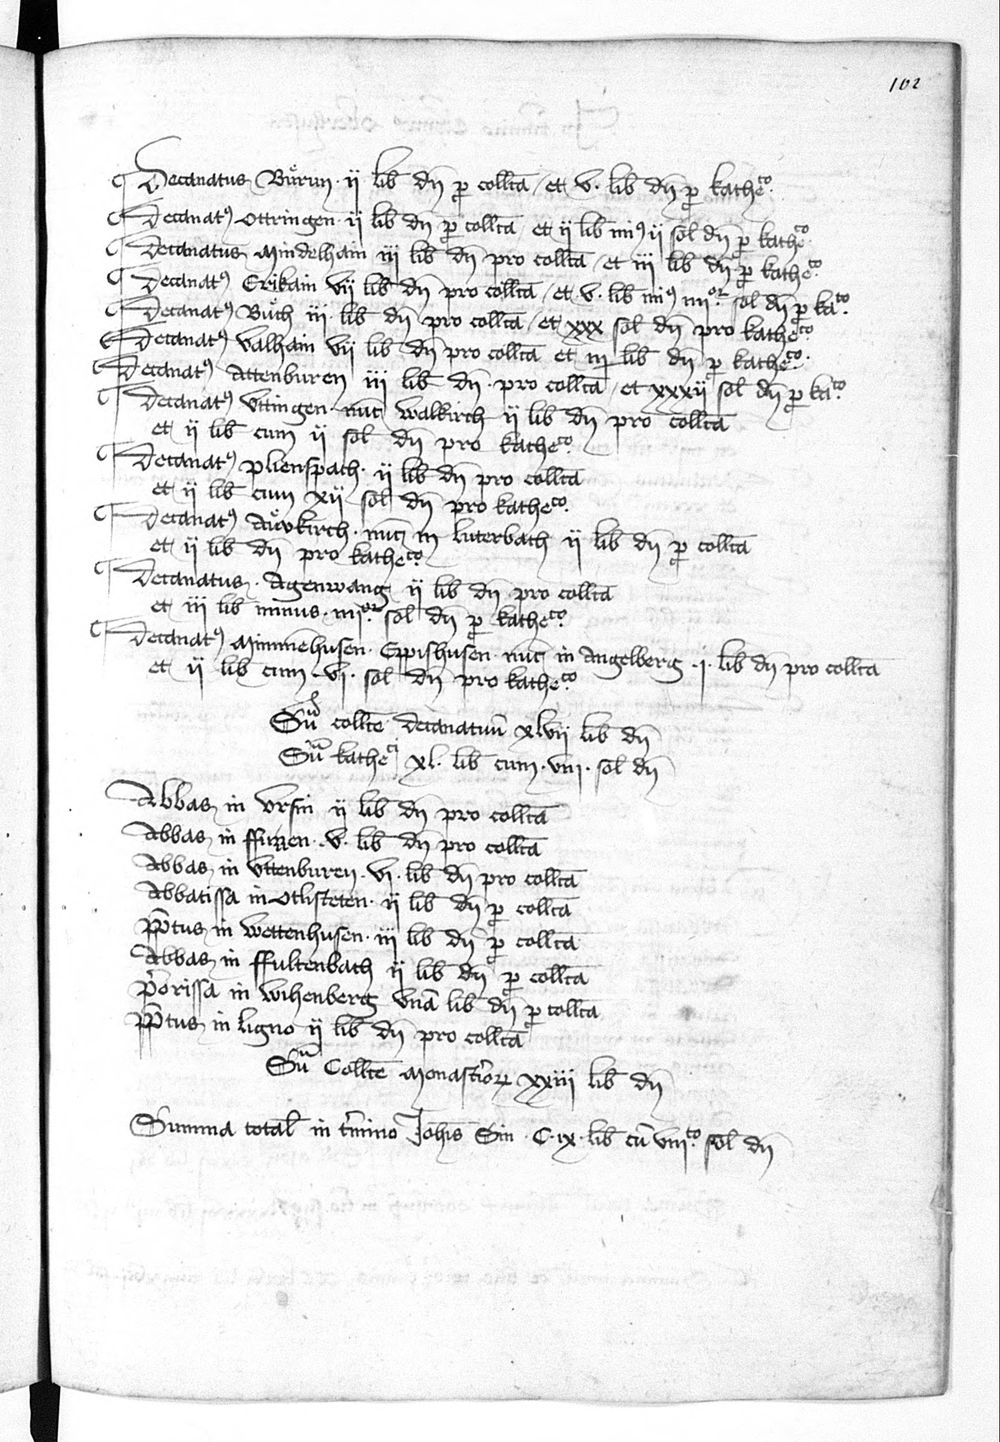 102
Decanatus Bu̍run · ij lib dn̄ p̱ collc̄ta / et v · lib dn̄ p̱ katheco.
Decanatꝰ Ottringen · ij lib dn̄ p̱ collc̄ta / et ij lib miꝰ ij sol dn̄ p̱ katheco.
Decanatus Mindelhain iij lib dn̄ pro collc̄ta / et iij lib dn̄ p̱ katheco.
Decanatꝰ Erikain vij lib dn̄ pro collc̄ta / et v · lib miꝰ iiijor sol dn̄ p̱ kaco.
Decanatꝰ Bu̍ch iij · lib dn̄ pro collc̄ta / et xxx sol dn̄ pro katheco
Decanatꝰ Valhain vij lib dn̄ pro collc̄ta et iij lib dn̄ p̱ katheco.
Decanatꝰ Attenburen iij lib dn̄ · pro collc̄ta / et xxxij sol dn̄ p̱ kaco
Decanatꝰ Vttingen · nūc walkirch ij lib dn̄ pro collc̄ta
et ij lib cum ij sol dn̄ pro katheco.
Decanatꝰ plienspach · ij lib dn̄ pro collc̄ta
et ij lib cum xij sol dn̄ pro katheco.
Decanatꝰ Auwkirch · nūc in luterbach ij lib dn̄ p̱ collc̄ta
et ij lib dn̄ pro katheco.
Decanatus · Agenwang ij lib dn̄ · pro collc̄ta
et iij lib minus · iiijor sol dn̄ p̱ katheco.
Decanatꝰ Mimmehusen · Eppishusen · nūc in Angelberg · j · lib dn̄ pro collc̄ta
et ij lib cum · vj · sol dn̄ pro katheco.
Sūa collc̄te decanatuū xlvij lib dn̄
Sūa kathecī xl · lib cum · viij · sol dn̄
Abbas in Vrsin ij lib dn̄ pro collc̄ta
Abbas in ffuzzen · v · lib dn̄ pro collc̄ta
Abbas in Vttenburen · vj · lib dn̄ pro collc̄ta
Abbatissa in Otlisteten · ij lib dn̄ p̱ collc̄ta
pp̄tus in wettenhusen · iij lib dn̄ p̱ collc̄ta
Abbas in ffultenbach ij lib dn̄ p̱ collc̄ta
p̄orissa in wihenberg vnā lib dn̄ p̱ collc̄ta
pp̄tus in ligno ij lib dn̄ pro collc̄ta
Sūa Collc̄te Monast̄iorꝝ xxiij lib dn̄
Summa total̄ in t̄mino Joh̄is Sin · C · ix · lib cū viijto sol dn̄